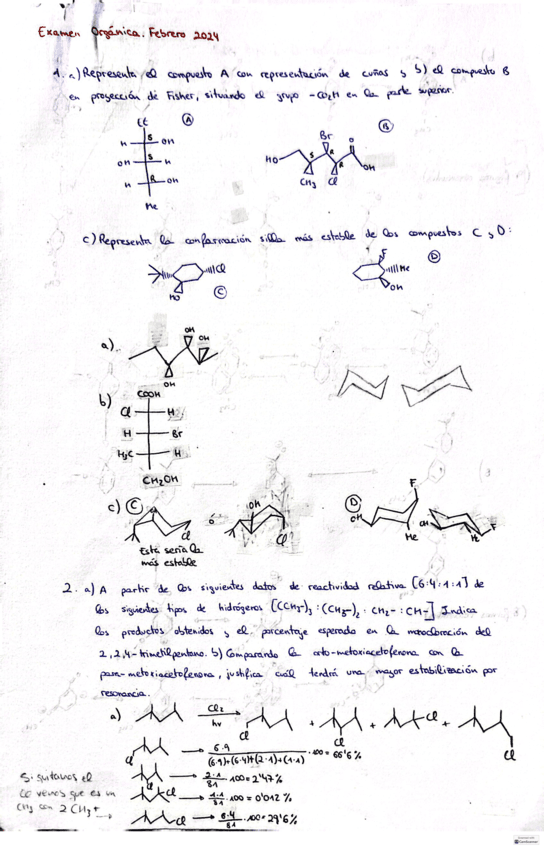 Examen Orgánica. Febrero 2024
1. a) Representa el compuesto A con representación de cuñas y b) el compuesto B
en proyección de Fisher, situando el grupo -CO2H en la parte superior.
Et
A
H S OH
OH S H
H R OH
Me
B
Br
O
HO
S
R
R
OH
CH3
Cl
c) Representa la conformación silla más estable de los compuestos C y D:
Cl
HO
C
F
Me
OH
D
a)
OH
OH
OH
b)
COOH
Cl H
H Br
H3C H
CH2OH
c) C
Cl
ó
OH
Cl
D
F
OH
Me
OH
F
Me
Esta sería la
más estable
2. a) A partir de los siguientes datos de reactividad relativa [6:4:1:1] de
los siguientes tipos de hidrógenos [(CH3-)3:(CH3-)2:CH2-:CH-] Indica
los productos obtenidos y el porcentaje esperado en la monocloración del
2,2,4-trimetilpentano. b) Comparando la orto-metoxiacetofenona con la
para-metoxiacetofenona, justifica cuál tendrá una mayor estabilización por
resonancia.
a)
Cl2
hν
Cl
+
Cl
+
Cl
+
Cl
Cl
6·9
(6·9)+(6·4)+(2·1)+(1·1)
·100=66'6%
Cl
2·1
81
·100=2'47%
Cl
1·1
81
·100=0'012%
Cl
6·4
81
·100=29'6%
Si quitamos el
Cl vemos que es un
CH3 con 2 CH3 +